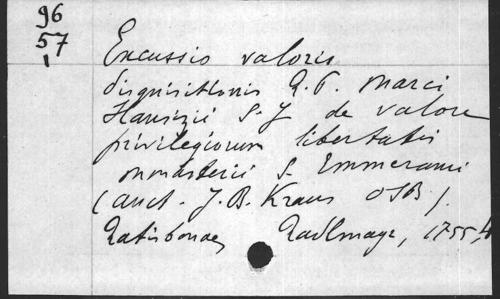 96
57
1
Excussio valoris
disquisitionis R. P. Marci
Hansizii S. J. de valore
privilegiorum libertatis
monasterii S. Emmerami
(auct. J. B. Kraus OSB).
Ratisbonae, Radlmayr, 1755,